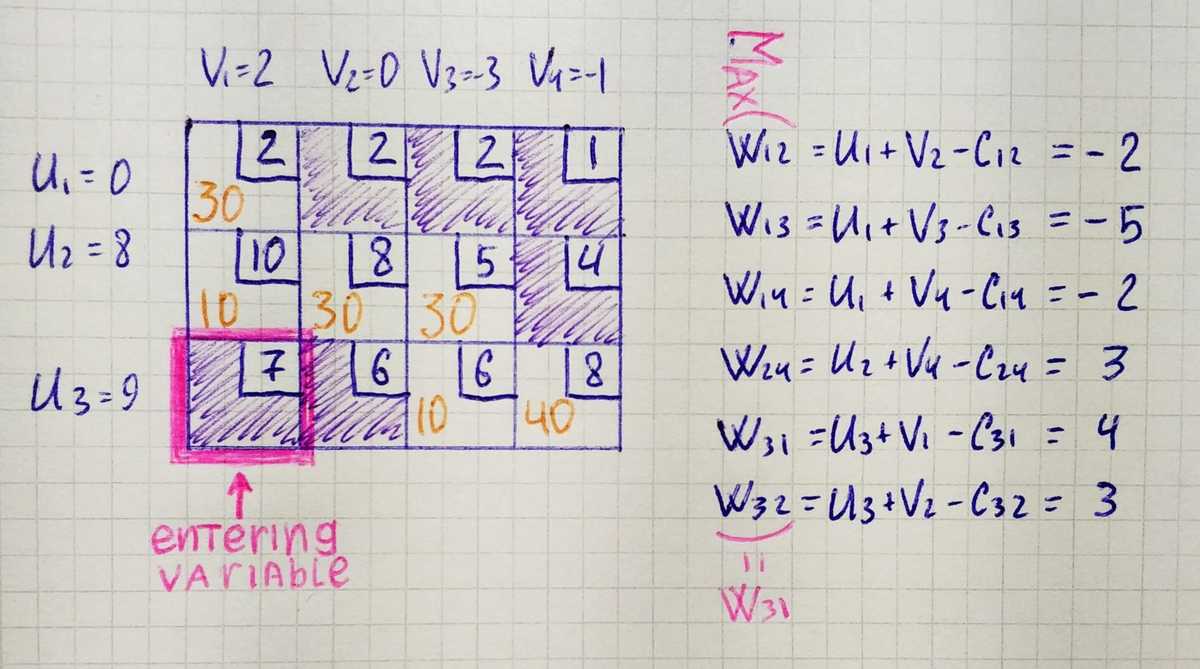 V1=2 V2=0 V3=-3 V4=-1
U1=0
U2=8
U3=9
2 2 2 1
30
10 8 5 4
10 30 30
7 6 6 8
10 40
entering
variable
MAX(
W12 = U1 + V2 - C12 = - 2
W13 = U1 + V3 - C13 = - 5
W14 = U1 + V4 - C14 = - 2
W24 = U2 + V4 - C24 = 3
W31 = U3 + V1 - C31 = 4
W32 = U3 + V2 - C32 = 3
)
=
W31